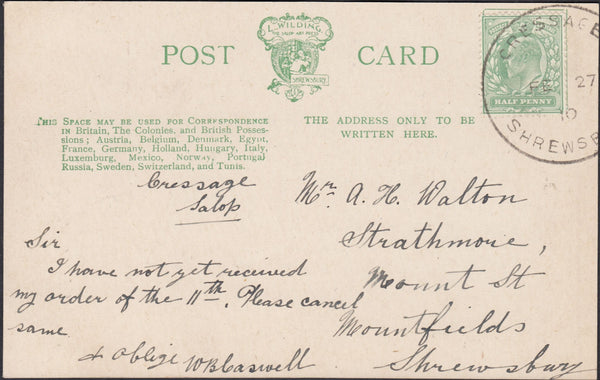 POST CARD
L. WILDING
THE SALOP ART PRESS
SHREWSBURY
THIS SPACE MAY BE USED FOR CORRESPONDENCE
in Britain, The Colonies, and British Posses-
sions; Austria, Belgium, Denmark, Egypt,
France, Germany, Holland, Hungary, Italy,
Luxemburg, Mexico, Norway, Portugal
Russia, Sweden, Switzerland, and Tunis.
THE ADDRESS ONLY TO BE
WRITTEN HERE.
HALF PENNY
CRESSAGE
FE 27
10
SHREWSB
Cressage
Salop
Sir
I have not yet received
my order of the 11th. Please cancel
same
& oblige W B Caswell
Mr. A. H. Walton
Strathmore,
Mount St
Mountfields
Shrewsbury